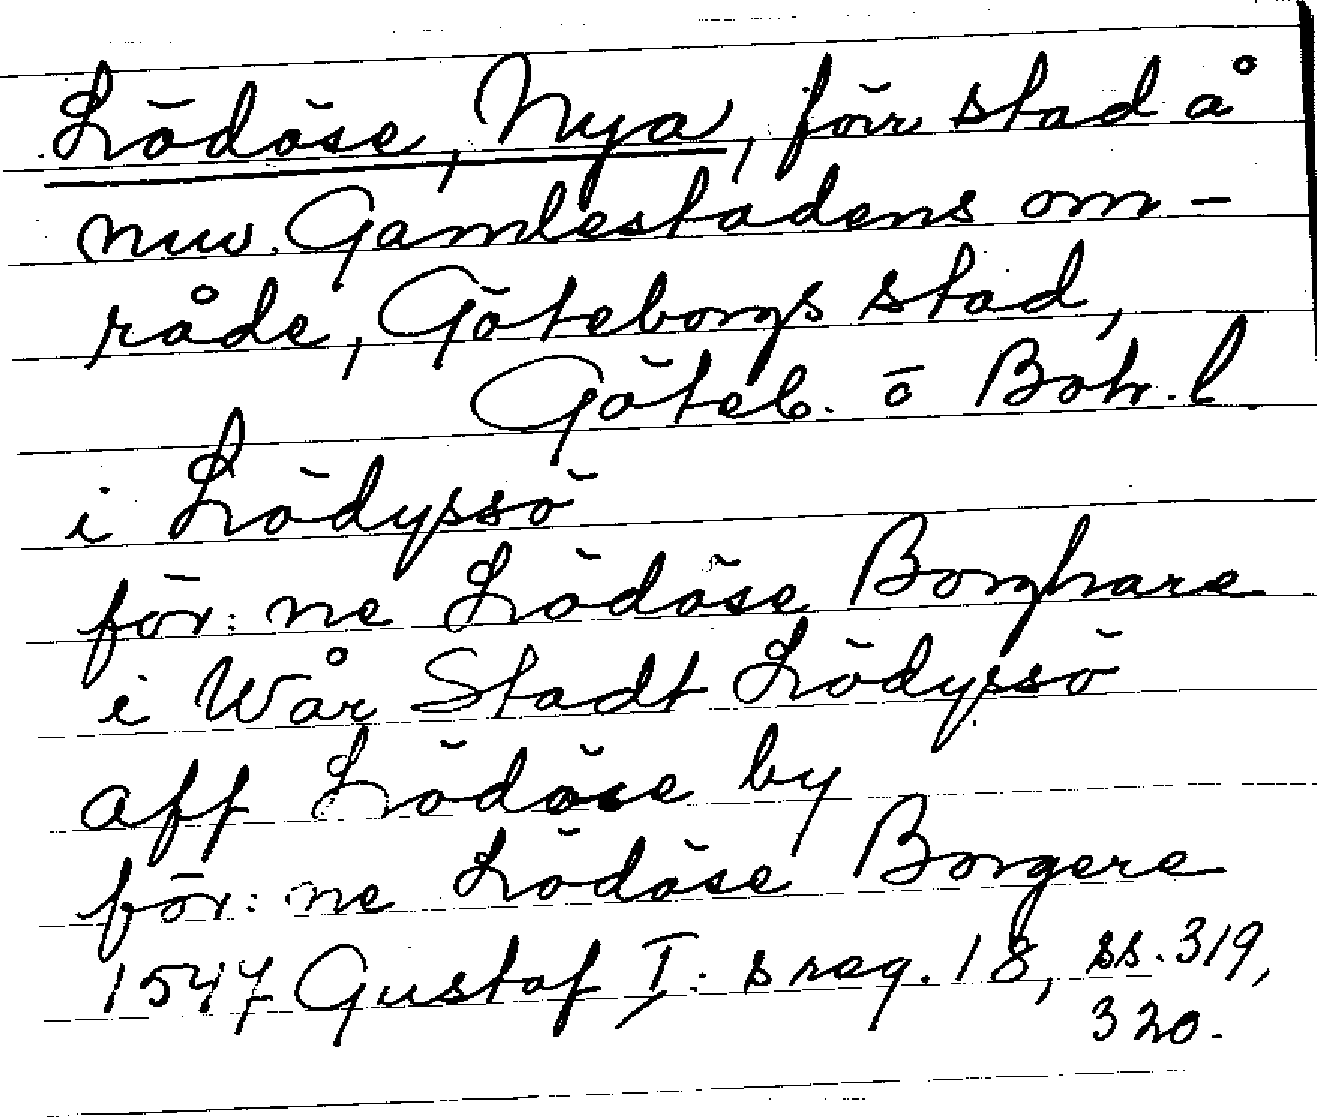 Lödöse, Nya, förr stad å
nuv. Gamlestadens om-
råde, Göteborgs stad,
Göteb. o Boh. l.
i Lödyssö
för: ne Lödöse Borghare
i Wår Stadt Lödyssö
aff Lödöse by
för: ne Lödöse Borgere
1547 Gustaf I: s reg. 18, ss. 319,
320.